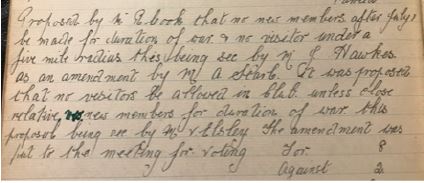 Proposed by Mr Ebook that no new members after July 1
be made for duration of war & no visitor under a
five mile radius this being sec by Mr J Hawkes
as an amendment by Mr A It was proposed
that no visitors be allowed in Club unless close
relative, no new members for duration of war this
proposal being sec by Mr V Elsley The amendment was
put to the meeting for voting For 8
Against 2